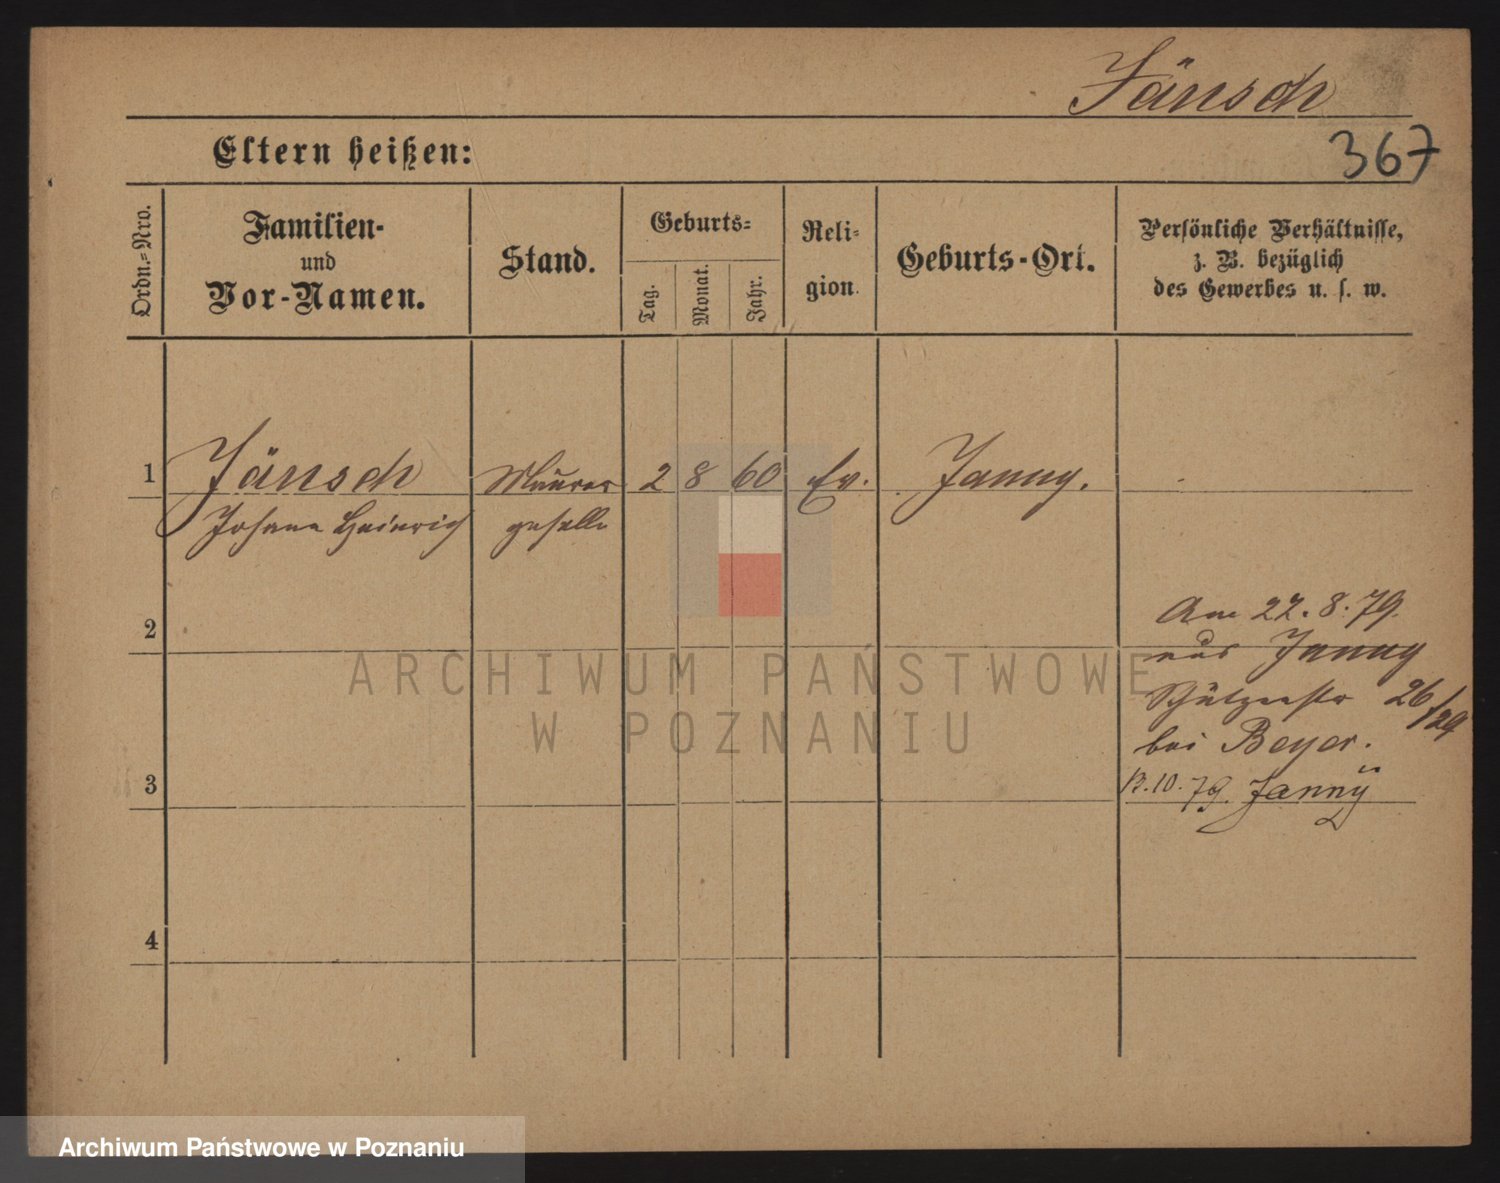 Jänsch
367
Eltern heißen:
Ordn.-Nro.
Familien-
und
Vor-Namen.
Stand.
Geburts-
Tag.
Monat.
Jahr.
Reli-
gion.
Geburts-Ort.
Persönliche Verhältnisse,
z. B. bezüglich
des Gewerbes u. s. w.
1 Jänsch Maurer 2 8 60 Ev. Janny.
Johann Heinrich geselle
Am 22. 8. 79.
2
aus Janny
Schützenstr 26/29
bei Beyer.
3
13.10.79. Janny
4
ARCHIWUM PAŃSTWOWE
W POZNANIU
Archiwum Państwowe w Poznaniu